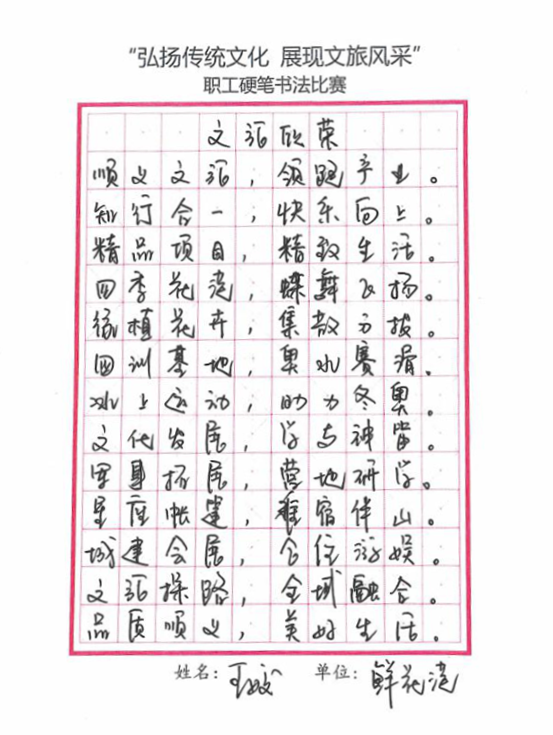 “弘扬传统文化 展现文旅风采”
职工硬笔书法比赛
文旅欣荣
顺义文旅，领跑产业。
知行合一；快乐向上。
精品项目，精致生活。
四季花港，蝶舞飞扬。
缘植花卉；集散方拔。
国训基地，奥水赛渭。
冰上运动；助力冬奥。
文化发展，学与神留。
军事拓展，营地研学。
星座帐篷，难宿伴山。
城建会展，会住游娱。
文旅探路，全域融合。
品质顺义，美好生活。
姓名：王 单位：鲜花港